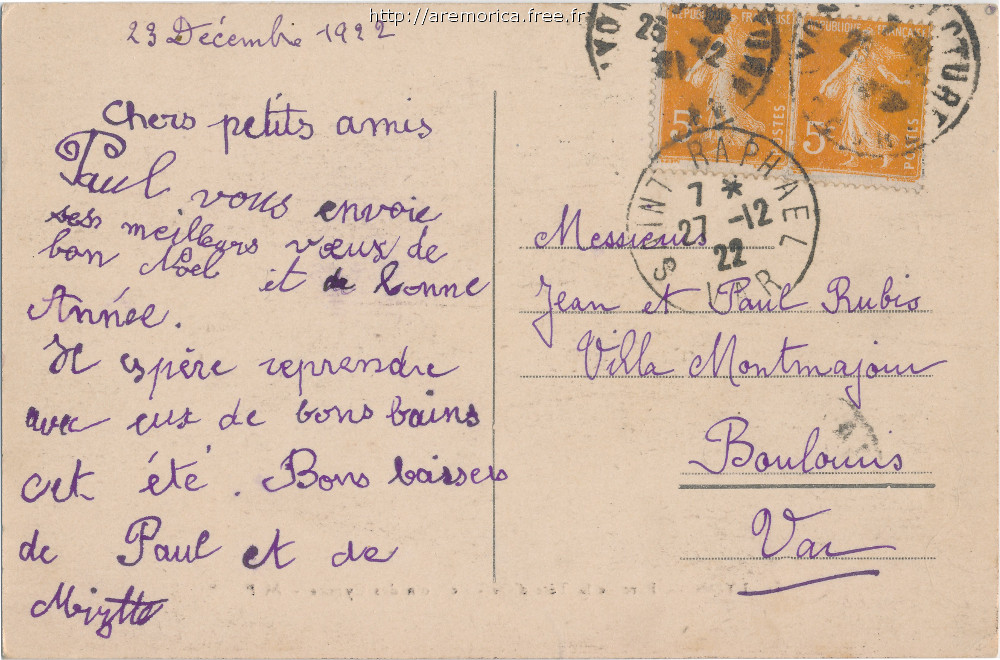 http://aremorica.free.fr
23 Décembre 1922
Chers petits amis
Paul vous envoie
ses meilleurs vœux de
bon Noel et de bonne
Année.
Il espère reprendre
avec eux de bons bains
cet été. Bons baisers
de Paul et de
REPUBLIQUE FRANÇAISE
5c
POSTES
5c
POSTES
SAINT RAPHAEL
7 *
27 -12
22
VAR
Messieurs
Jean et Paul Rubis
Villa Montmajour
Boulouris
Var